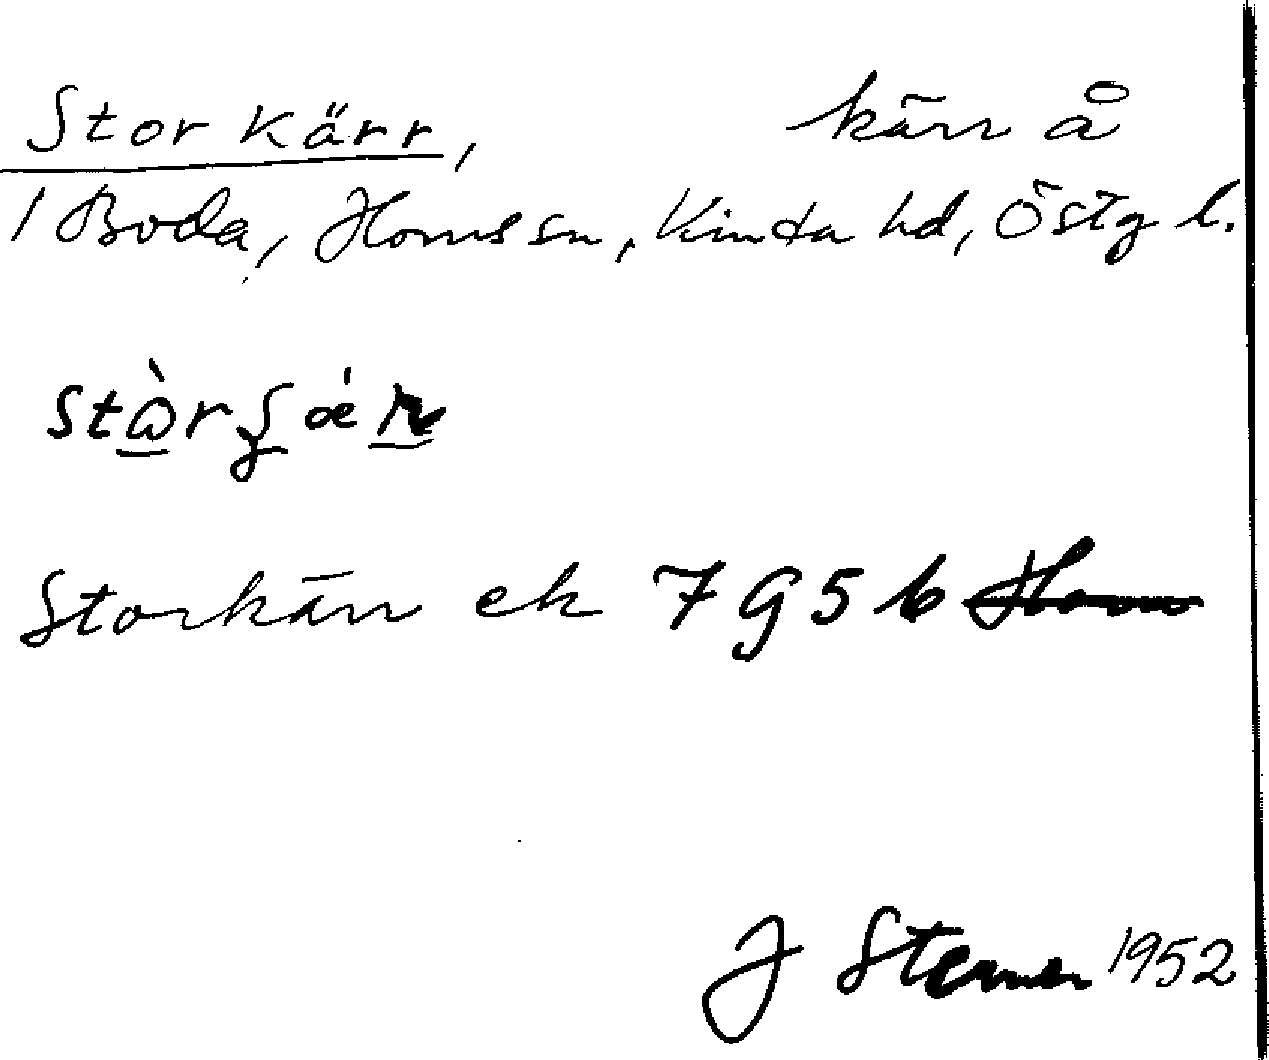 Storkärr, kärr å
/ Boda, Horns sn, Kinda hd, Östg l.
Storkärr ek 7 G 5 b
J Sterner 1952